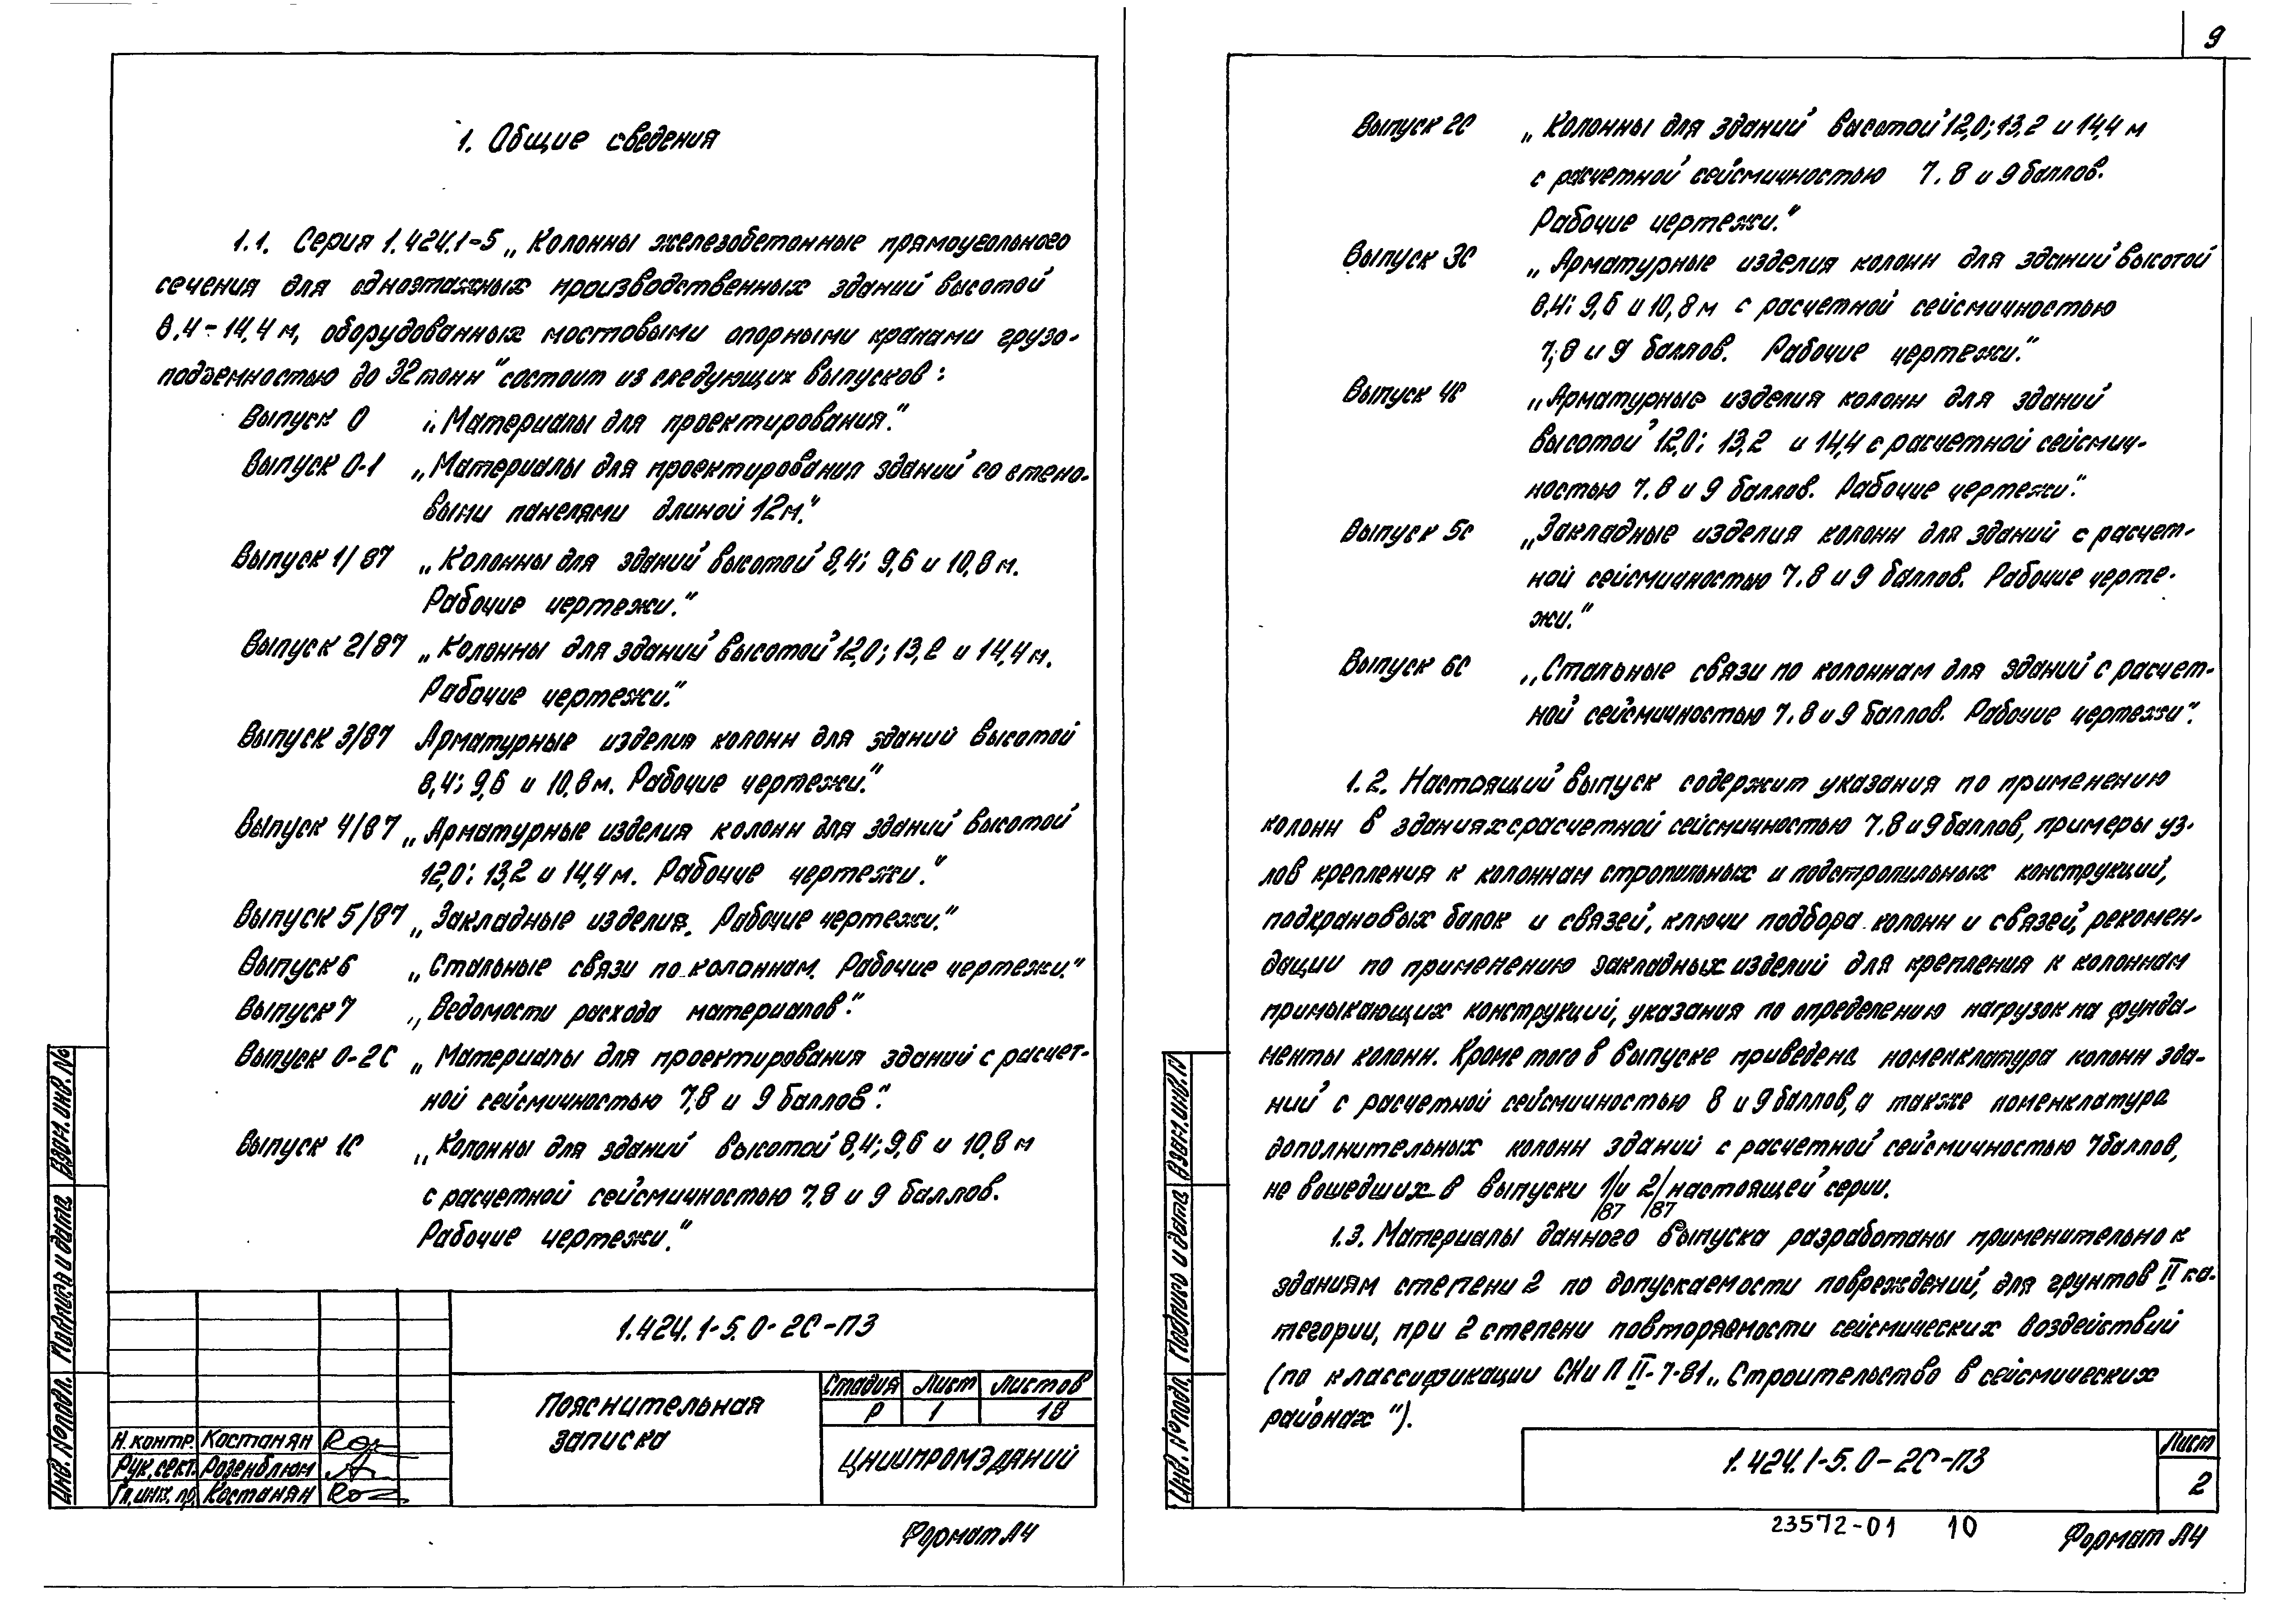 1. Общие сведения
1.1. Серия 1.424.1-5 „Колонны железобетонные прямоугольного
сечения для одноэтажных производственных зданий высотой
8,4-14,4 м, оборудованных мостовыми опорными кранами грузо-
подъемностью до 32 тонн" состоит из следующих выпусков:
Выпуск 0 „Материалы для проектирования."
Выпуск 0-1 „Материалы для проектирования зданий со стено-
выми панелями длиной 12 м."
Выпуск 1/87 „Колонны для зданий высотой 8,4; 9,6 и 10,8 м.
Рабочие чертежи."
Выпуск 2/87 „Колонны для зданий высотой 12,0; 13,2 и 14,4 м.
Рабочие чертежи."
Выпуск 3/87 Арматурные изделия колонн для зданий высотой
8,4; 9,6 и 10,8 м. Рабочие чертежи."
Выпуск 4/87 „Арматурные изделия колонн для зданий высотой
12,0; 13,2 и 14,4 м. Рабочие чертежи."
Выпуск 5/87 „Закладные изделия. Рабочие чертежи."
Выпуск 6 „Стальные связи по колоннам. Рабочие чертежи."
Выпуск 7 „Ведомости расхода материалов".
Выпуск 0-2С „Материалы для проектирования зданий с расчет-
ной сейсмичностью 7,8 и 9 баллов".
Выпуск 1С „Колонны для зданий высотой 8,4; 9,6 и 10,8 м
с расчетной сейсмичностью 7,8 и 9 баллов.
Рабочие чертежи."
1.424.1-5.0-2С-ПЗ
Пояснительная
записка
Стадия Лист Листов
Р 1 18
ЦНИИПРОМЗДАНИЙ
Н. контр. Костанян
Рук. сект. Розенблюм
Гл. инж. пр. Костанян
Инв. № подл. Подпись и дата Взам. инв. №
Формат А4
9
Выпуск 2С „Колонны для зданий высотой 12,0; 13,2 и 14,4 м
с расчетной сейсмичностью 7.8 и 9 баллов.
Рабочие чертежи."
Выпуск 3С „Арматурные изделия колонн для зданий высотой
8,4; 9,6 и 10,8 м с расчетной сейсмичностью
7,8 и 9 баллов. Рабочие чертежи."
Выпуск 4С „Арматурные изделия колонн для зданий
высотой 12,0; 13,2 и 14,4 с расчетной сейсмич-
ностью 7.8 и 9 баллов. Рабочие чертежи".
Выпуск 5С „Закладные изделия колонн для зданий с расчет-
ной сейсмичностью 7.8 и 9 баллов. Рабочие черте-
жи."
Выпуск 6С „Стальные связи по колоннам для зданий с расчет-
ной сейсмичностью 7.8 и 9 баллов. Рабочие чертежи".
1.2. Настоящий выпуск содержит указания по применению
колонн в зданиях с расчетной сейсмичностью 7.8 и 9 баллов, примеры уз-
лов крепления к колоннам стропильных и подстропильных конструкций,
подкрановых балок и связей, ключи подбора колонн и связей, рекомен-
дации по применению закладных изделий для крепления к колоннам
примыкающих конструкций, указания по определению нагрузок на фунда-
менты колонн. Кроме того в выпуске приведена номенклатура колонн зда-
ний с расчетной сейсмичностью 8 и 9 баллов, а также номенклатура
дополнительных колонн зданий с расчетной сейсмичностью 7 баллов,
не вошедших в выпуски 1/87 и 2/87 настоящей серии.
1.3. Материалы данного выпуска разработаны применительно к
зданиям степени 2 по допускаемости повреждений, для грунтов II ка-
тегории, при 2 степени повторяемости сейсмических воздействий
(по классификации СНиП II-7-81 „Строительство в сейсмических
районах").
1.424.1-5.0-2С-ПЗ
Лист
2
Инв. № подл. Подпись и дата Взам. инв. №
23572-01 10
Формат А4